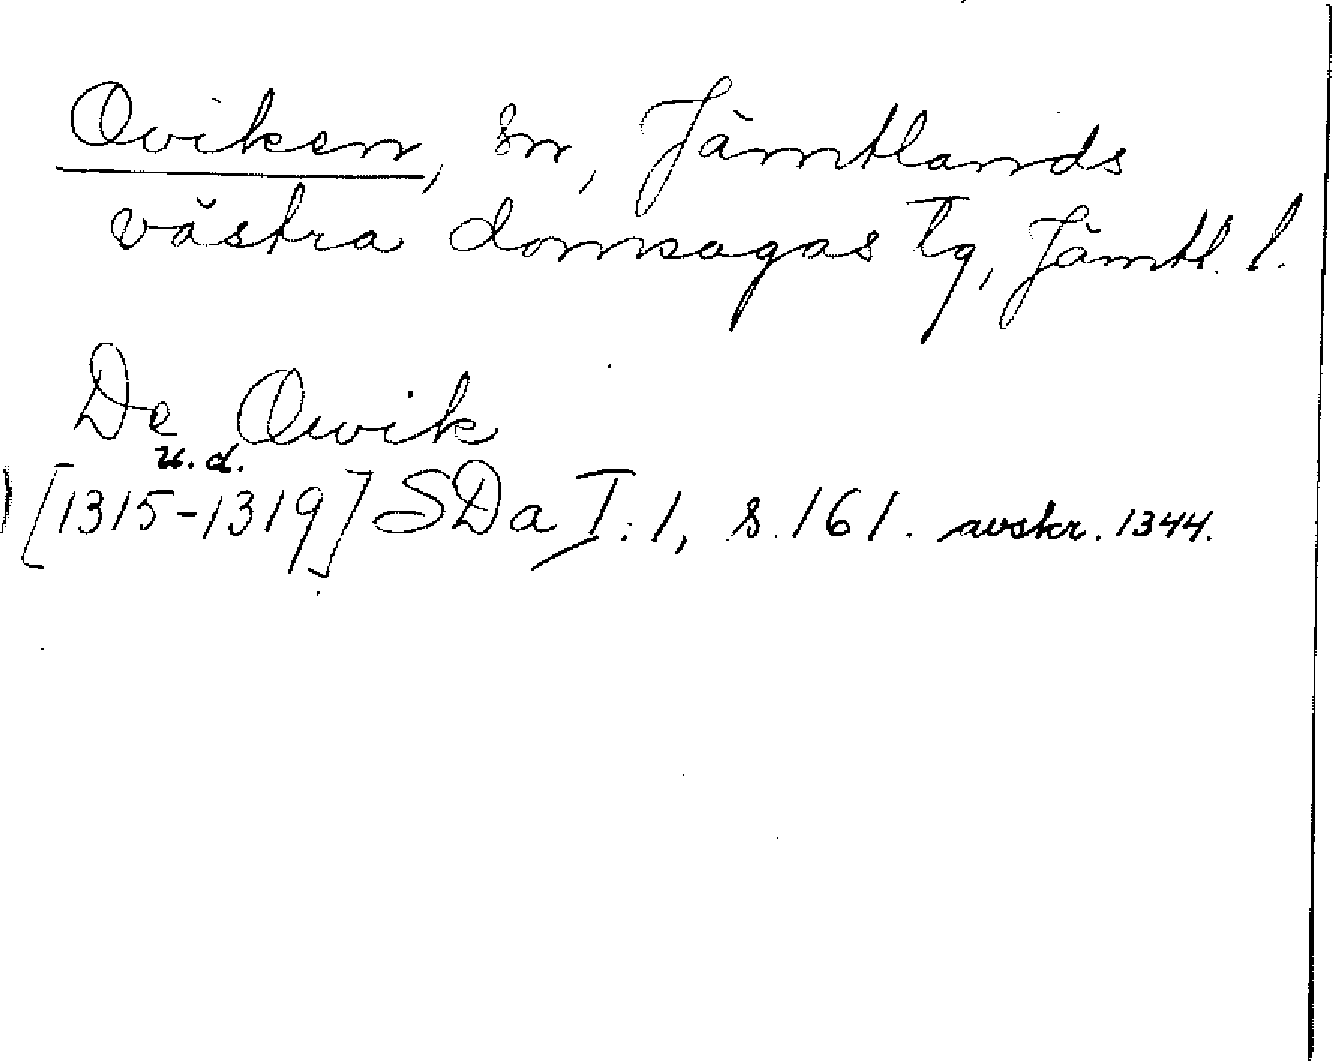 Oviken, sn, Jämtlands
västra domsagas tg, Jämtl. l.
De Owik
u. d.
[1315-1319] SDa I:1, s. 161. avskr. 1344.